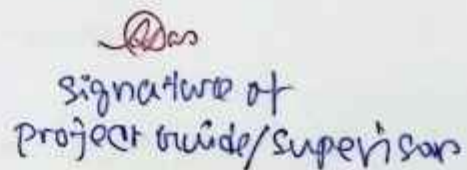 Das
signature of
project Guide/Supervisor